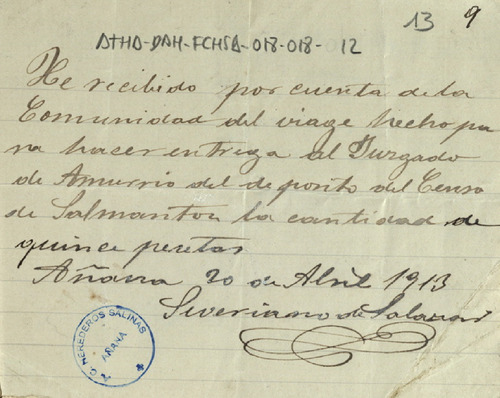 13 9
ATHA-DAH-FCHSA-018-018-12
He recibido por cuenta de la
Comunidad del viage hecho pa
ra hacer entrega al Jurgado
de Amurrio del deposito del Censo
de Salmanton la cantidad de
quince pesetas
Añana 20 de Abril 1913
Severiano de Salazar
HEREDEROS SALINAS
AÑANA